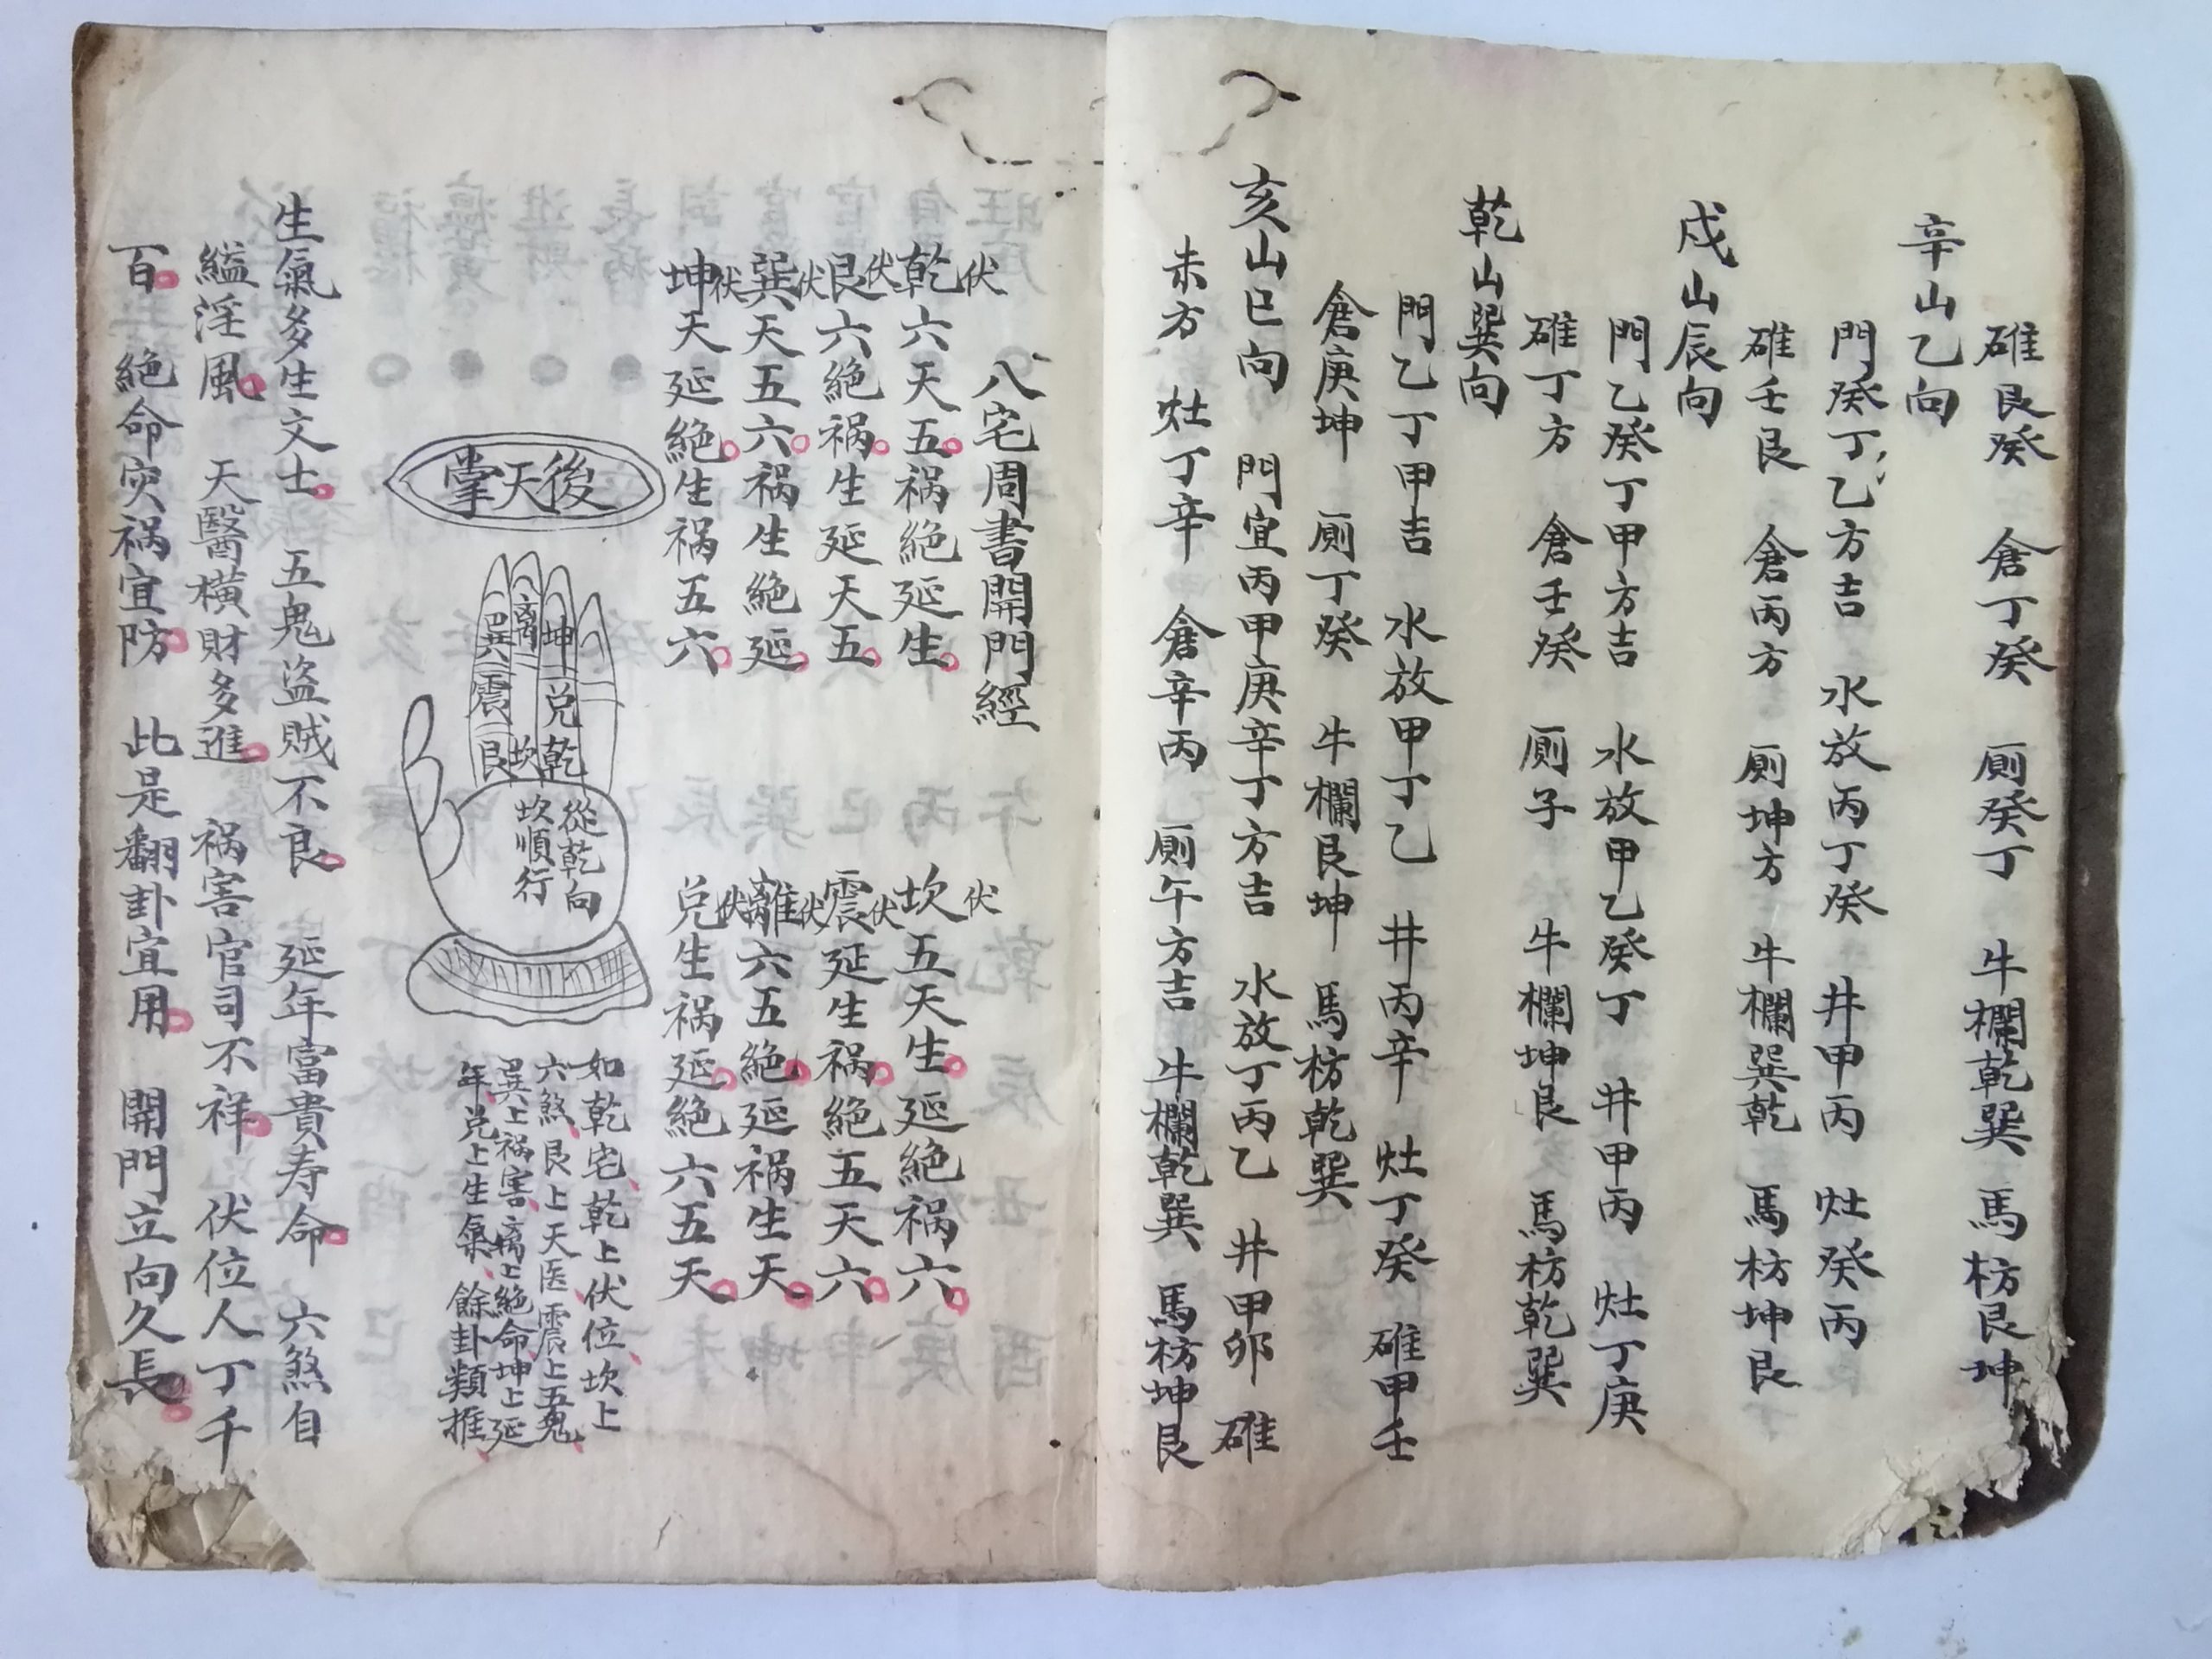 碓艮癸　倉丁癸　厠癸丁　牛欄乾巽　馬枋艮坤
辛山乙向
門癸丁乙方吉　水放丙丁癸　井甲丙　灶癸丙
碓壬艮　倉丙方　厠坤方　牛欄巽乾　馬枋坤艮
戌山辰向
門乙癸丁甲方吉　水放甲乙癸丁　井甲丙　灶丁庚
碓丁方　倉壬癸　厠子　牛欄坤艮　馬枋乾巽
乾山巽向
門乙丁甲吉　水放甲丁乙　井丙辛　灶丁癸　碓甲壬
倉庚坤　厠丁癸　牛欄艮坤　馬枋乾巽
亥山巳向　門宜丙甲庚辛丁方吉　水放丁丙乙　井甲卯　碓
未方　灶丁辛　倉辛丙　厠午方吉　牛欄乾巽　馬枋坤艮
八宅周書開門經
伏　伏
乾六天五祸絕延生　坎五天生延絕祸六
伏　伏
艮六絕祸生延天五　震延生祸絕五天六
伏　伏
巽天五六祸生絕延　離六五絕延祸生天
伏　伏
坤天延絕生祸五六　兑生祸延絕六五天
後天掌
坤　兑　乾
離　坎
巽　震　艮
從乾向
坎順行
如乾宅乾上伏位坎上
六煞艮上天医震上五鬼
巽上祸害离上絕命坤上延
年兑上生氣餘卦類推
生氣多生文士　五鬼盗贼不良　延年富貴寿命　六煞自
縊淫風　天醫横財多進　祸害官司不祥　伏位人丁千
百　絕命灾祸宜防　此是翻卦宜用　開門立向久長